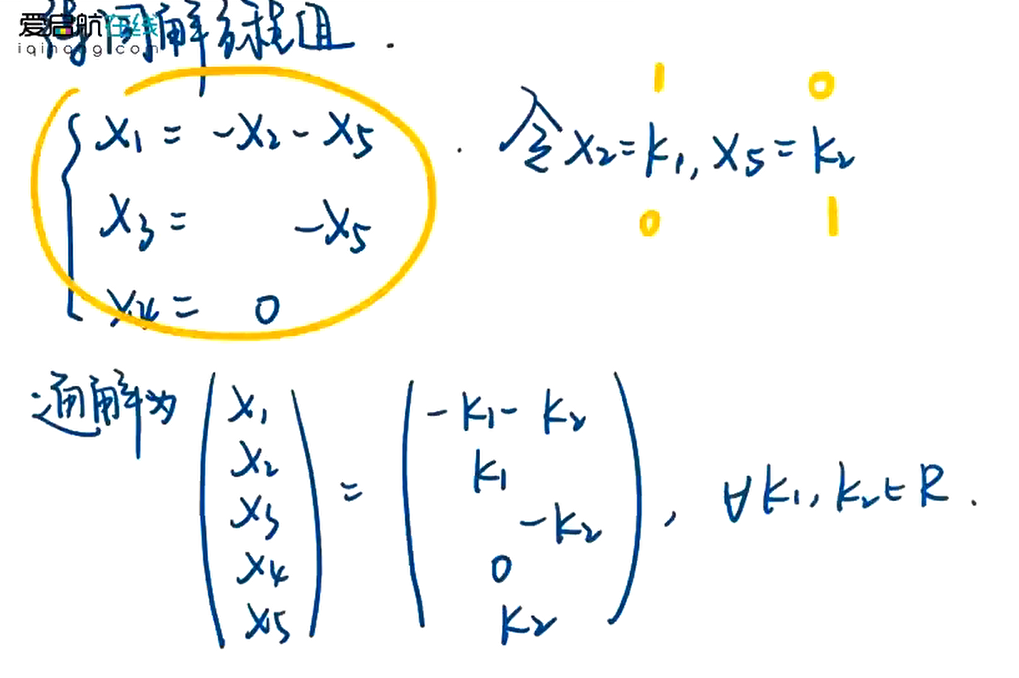 爱启航在线
iqihang.com
得同解方程组.
x₁ = -x₂ - x₅
x₃ = -x₅
x₄ = 0
1 0
. 令x₂=k₁, x₅=k₂
0 1
通解为 (x₁ x₂ x₃ x₄ x₅) = (-k₁-k₂ k₁ -k₂ 0 k₂), ∀k₁, k₂∈R.